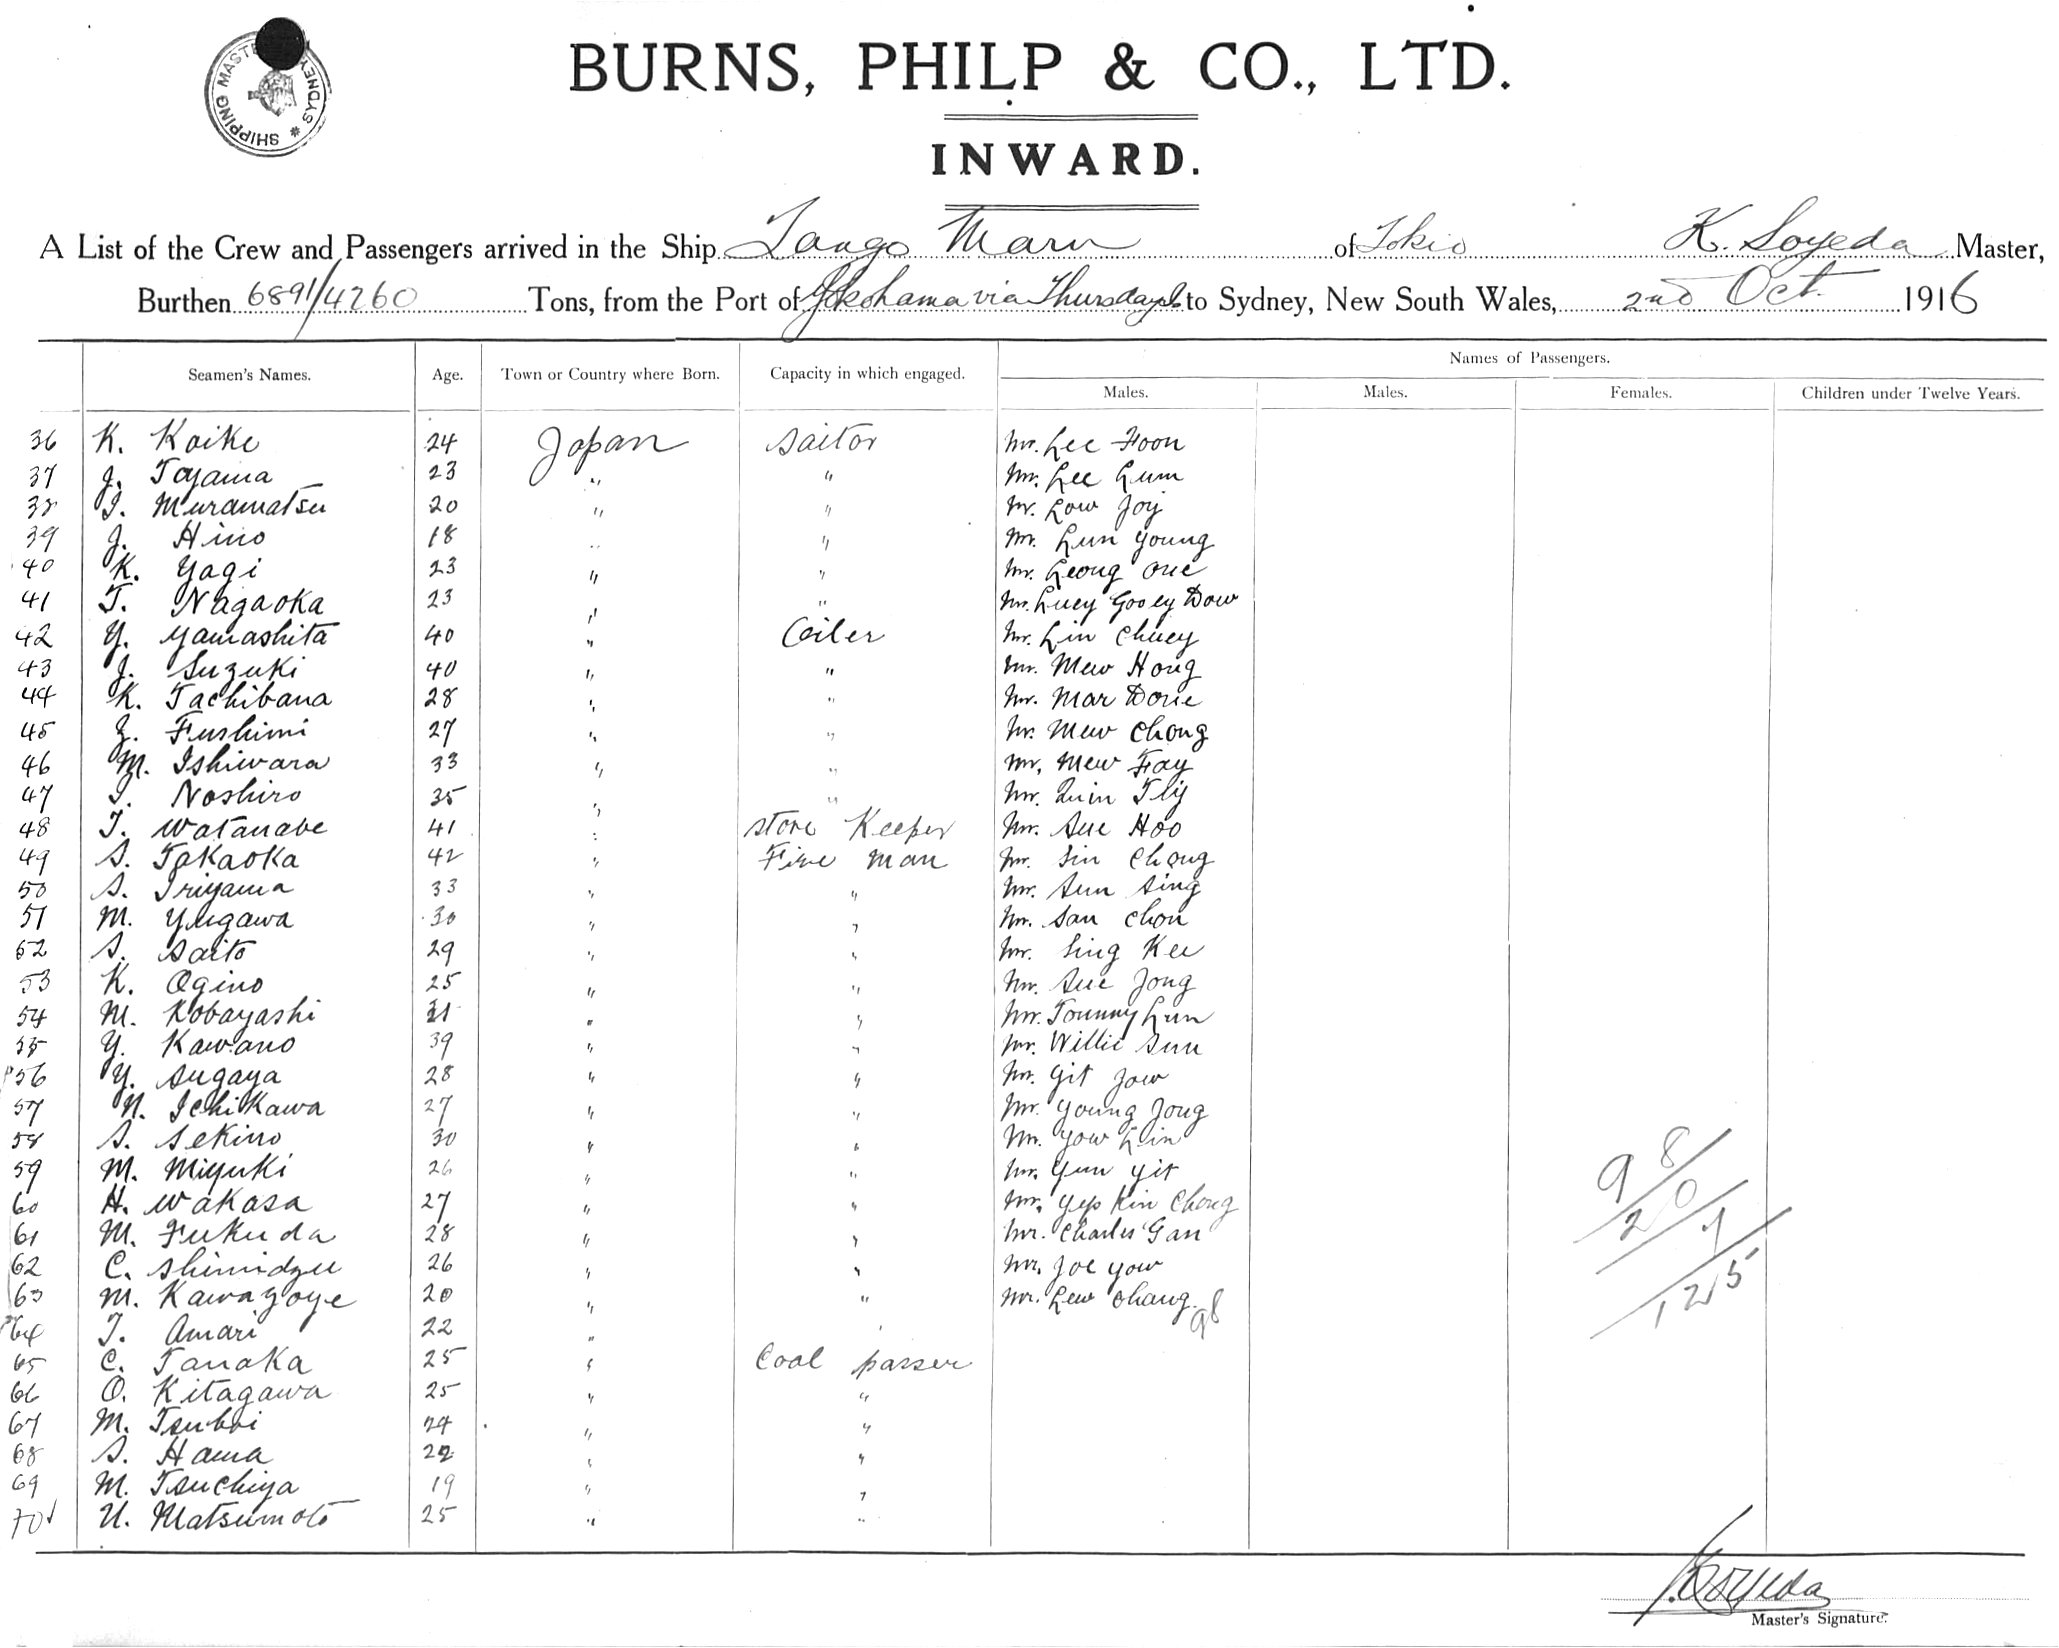 SHIPPING MASTER SYDNEY
BURNS, PHILP & CO., LTD.
INWARD.
A List of the Crew and Passengers arrived in the Ship Tango Maru of Tokio K. Soyeda Master,
Burthen 6891/4260 Tons, from the Port of Yokohama via Thursday I. to Sydney, New South Wales, 2nd Oct. 1916
Names of Passengers.
Seamen's Names. Age. Town or Country where Born. Capacity in which engaged. Males. Males. Females. Children under Twelve Years.
36 K. Koike 24 Japan sailor Mr. Lee Foon
37 J. Toyama 23 " " Mr. Lee Lum
38 I. Muramatsu 20 " " Mr. Low Joy
39 J. Hino 18 " " Mr. Lun Young
40 K. Yagi 23 " " Mr. Leong One
41 T. Nagaoka 23 " " Mr. Luey Gooey Dow
42 Y. Yamashita 40 " Oiler Mr. Lin Chuey
43 J. Suzuki 40 " " Mr. Mew Hong
44 K. Tachibana 28 " " Mr. Mar Done
45 Z. Fushimi 27 " " Mr. Mew Chong
46 M. Ishiwara 33 " " Mr. Mew Fay
47 I. Noshiro 35 " " Mr. Quin Tly
48 T. Watanabe 41 " store Keeper Mr. Sue Hoo
49 S. Takaoka 42 " Fire man Mr. Sin Chong
50 S. Iriyama 33 " " Mr. Sun Sing
51 M. Yugawa 30 " " Mr. San Chon
52 S. Saito 29 " " Mr. Sing Kee
53 K. Ogino 25 " " Mr. Sue Jong
54 M. Kobayashi 31 " " Mr. Tommy Lun
55 Y. Kawano 39 " " Mr. Willie Sun
56 Y. Sugaya 28 " " Mr. Git Jow
57 N. Ichikawa 27 " " Mr. Young Jong
58 S. Sekino 30 " " Mr. Yow Lin
59 M. Miyuki 26 " " Mr. Yun Yit
60 H. Wakasa 27 " " Mr. Yep Kin Chong
61 M. Fukuda 28 " " Mr. Charles Gan
62 C. Shimidzu 26 " " Mr. Joe Yow
63 M. Kawazoye 20 " " Mr. Lew Chang
98
64 T. Amari 22 " "
65 C. Tanaka 25 " Coal passer
66 O. Kitagawa 25 " "
67 M. Tsuboi 24 " "
68 S. Hama 22 " "
69 M. Tsuchiya 19 " "
70 U. Matsumoto 25 " "
98
20
7
125
K. Soyeda
Master's Signature.